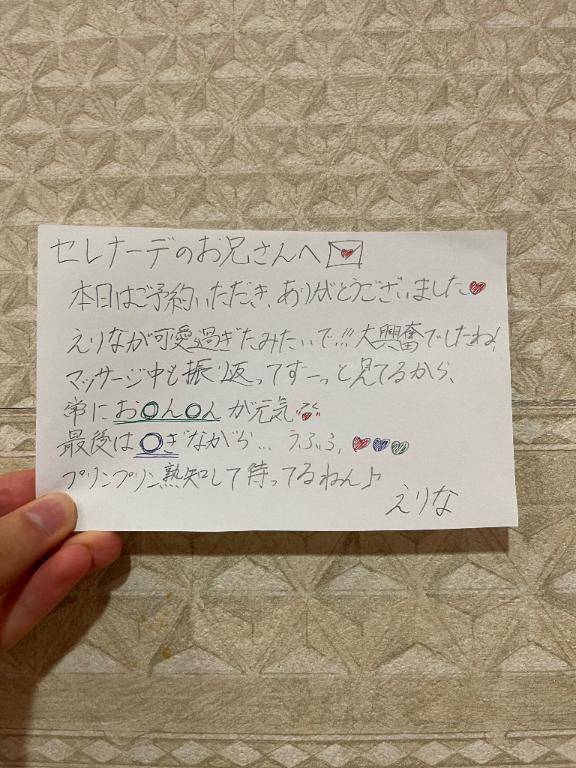 セレナーデのお兄さんへ
本日はご予約いただき、ありがとうございました
えりなが可愛過ぎたみたいで!!!大興奮でしたね!
マッサージ中も振り返ってずーっと見てるから、
常にお○ん○んが元気
最後は○ぎながら…うふふ
プリンプリン熟知して待ってるねん♪
えりな